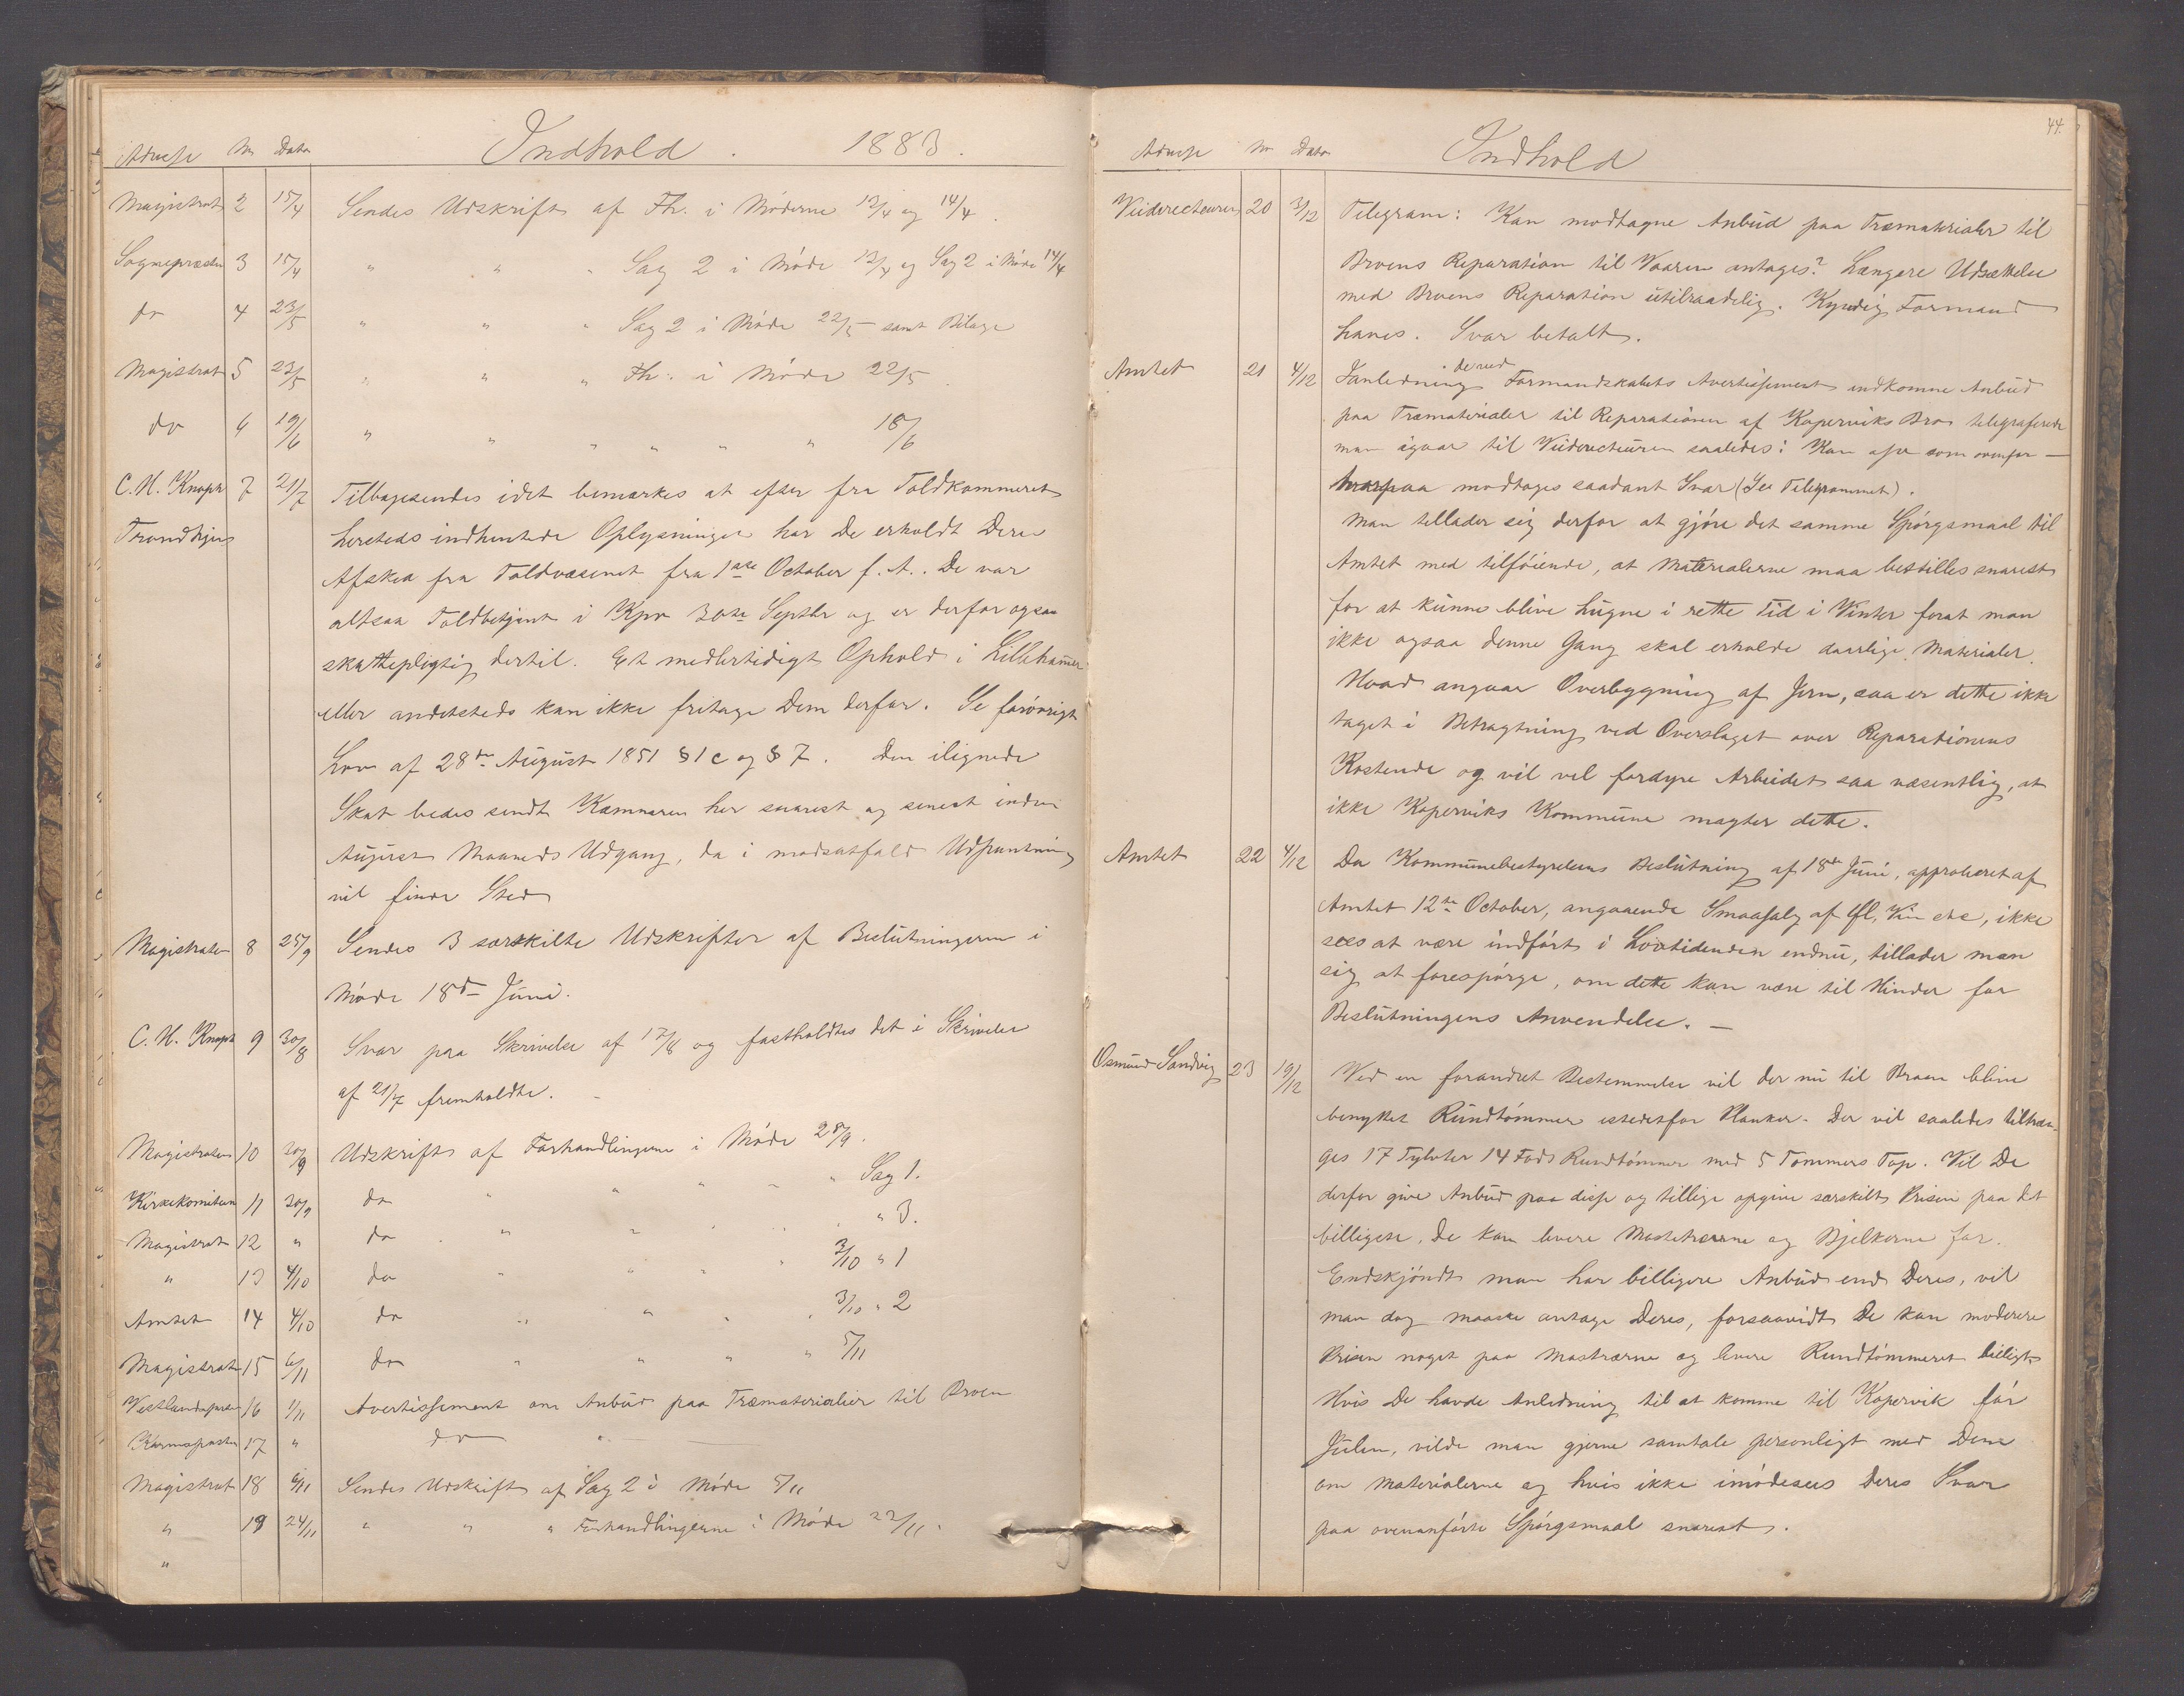 Adresse No Dato Indhold. 1883.
Magistrat 2 15/4 Sendes Udskrift af Fh. i Møderne 13/4 og 14/4.
Sognepræsten 3 15/4 " " " Sag 2 i Møde 13/4 og Sag 2 i Møde 14/4
do 4 23/5 " " " Sag 2 i Møde 22/5 samt Bilage
Magistrat 5 23/5 " " " Fh. i Møde 22/5.
do 6 19/6 " " " " " " 18/6
C. H. Knoph 7 21/7 Tilbagesendes idet bemærkes at efter fra Toldkammeret
Trondhjem hersteds indhentede Oplysninger har De erholdt Deres
Afsked fra Toldvæsenet fra 1ste October f. A. De var
altsaa Toldbetjent i Kpv 30te Septbr og er derfor ogsaa
skattepligtig dertil. Et medlertidigt Ophold i Lillehamer
eller andetsteds kan ikke fritage Dem derfor. Se forøvrigt
Lov af 28de August 1851 § 1 c og § 7. Den ilignede
Skat bedes sendt Kæmneren her snarest og senest inden
August Maaneds Udgang, da i modsatfald Udpantning
vil finde Sted
Magistraten 8 25/9 Sendes 3 særskilte Udskrifter af Beslutningerne i
Møde 18de Juni.
C. H. Knoph 9 30/8 Svar paa Skrivelse af 17/8 og fastholdtes det i Skrivelse
af 21/7 fremholdte.
Magistraten 10 30/9 Udskrift af Forhandlingerne i Møde 28/9.
Kirkekomiteen 11 30/9 do " " " " " Sag 1.
Magistrat 12 " do " " " " " 3.
" 13 4/10 do " " " " 3/10 " 1
Amtet 14 4/10 do " " " " 3/10 " 2
Magistrat 15 6/11 do " " " " 5/11
Vestlandsposten 16 1/11 Avertissement om Anbud paa Træmaterialier til Broen
Karmsposten 17 " do "
Magistrat 18 6/11 Sendes Udskrift af Sag 2 i Møde 5/11
" 19 24/11 " " " Forhandlingerne i Møde 22/11.
"
44.
Adresse No Dato Indhold
Veidirecteuren 20 3/12 Telegram: Kan modtagne Anbud paa Træmaterialer til
Broens Reparation til Vaaren antages? Længere Udsættelse
med Broens Reparation utilraadelig. Kyndig Formand
haves. Svar betalt.
Amtet 21 4/12 I anledning derved Formandskabets Avertissement indkomne Anbud
paa Træmaterialer til Reparationen af Kopervik Bro telegraferede
man igaar til Veidirecteuren saaledes: Kan osv som ovenfor —
hvorpaa modtoges saadant Svar (See Telegrammet).
Man tillader sig derfor at gjøre det samme Spørgsmaal til
Amtet med tilføiende, at Materialerne maa bestilles snarest
for at kunne blive hugne i rette Tid i Vinter forat man
ikke ogsaa denne Gang skal erholde daarlige Materialer.
Hvad angaar Overbygning af Jern, saa er dette ikke
taget i Betragtning ved Overslaget over Reparationens
Kostende og vil vel fordyre Arbeidet saa væsentlig, at
ikke Koperviks Kommune magter dette.
Amtet 22 4/12 Da Kommunebestyrelsens Beslutning af 18de Juni, approberet af
Amtet 12te October, angaaende Smaasalg af Øl, Vin etc, ikke
sees at være indført i Lovtidenden endnu, tillader man
sig at forespørge, om dette kan være til Hinder for
Beslutningens Anvendelse. —
Osmund Sandvig 23 19/12 Ved en forandret Bestemmelse vil der nu til Broen blive
benyttet Rundtømmer istedetfor Planker. Der vil saaledes tiltræn-
ges 17 Tylvter 14 Fods Rundtømmer med 5 Tommers Top. Vil De
derfor give Anbud paa disse og tillige opgive særskilt Prisen paa det
billigste, De kan levere Mastetræerne og Bjelkerne for.
Endskjøndt man har billigere Anbud end Deres, vil
man dog maaske antage Deres, forsaavidt De kan moderere
Prisen noget paa Mastræerne og levere Rundtømmeret billigt
Hvis De havde Anledning til at komme til Kopervik før
Julen, vilde man gjerne samtale personligt med Dem
om Materialerne og hvis ikke imødesees Deres Svar
paa ovenanførte Spørgsmaal snarest.